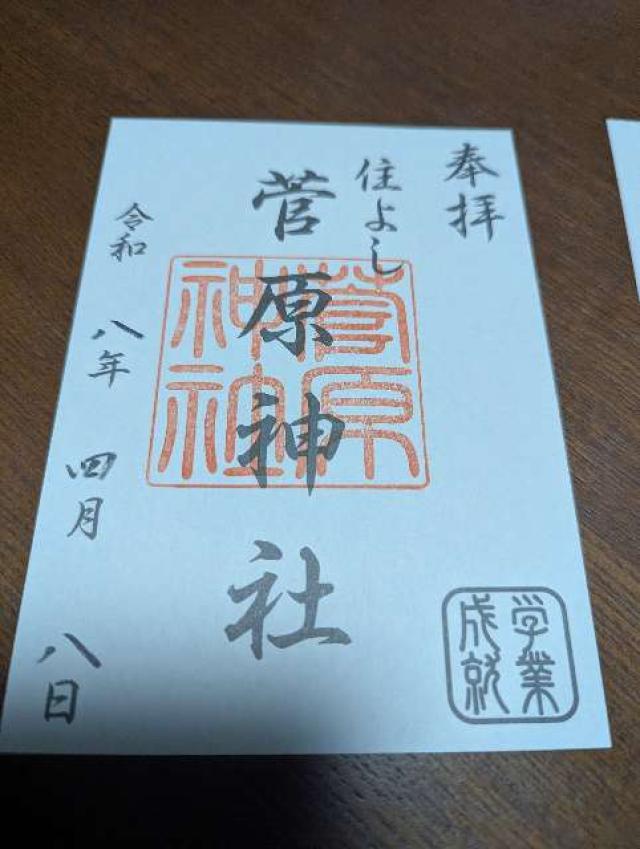 奉拝
住よし
菅原神社
菅原
神社
令和 八年 四月 八日
学業
成就